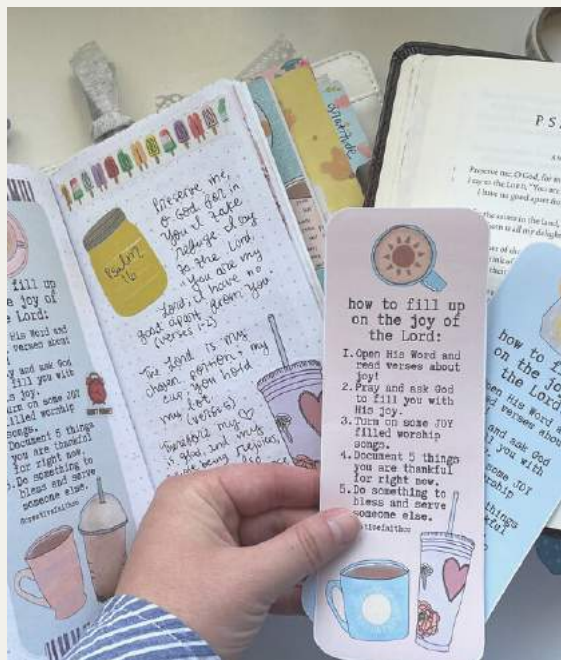 fill up
joy of
Lord:
His Word and
verses about
and ask God
fill you with
joy.
on some JOY
filled worship
songs.
Document 5 things
you are thankful
for right now.
Do something to
bless and serve
someone else.
@creativefaithco
Psalm
16
Preserve me,
O God, for in
You I take
refuge. I say
to the Lord,
"You are my
Lord; I have no
good apart from You."
(verses 1-2)
The Lord is my
chosen portion & my
cup; You hold
my lot.
(verse 5)
Therefore my
is glad, and my
being rejoices,
gratitude
how to fill up
on the joy of
the Lord:
1. Open His Word and
read verses about
joy!
2. Pray and ask God
to fill you with
His joy.
3. Turn on some JOY
filled worship
songs.
4. Document 5 things
you are thankful
for right now.
5. Do something to
bless and serve
someone else.
PS
Preserve me, O God, for
I say to the LORD, "You are
I have no good apart
the saints in the land,
all my delight
how to
on the joy
the Lord
His Word
verses about
and ask God
you with
some JOY
worship
things